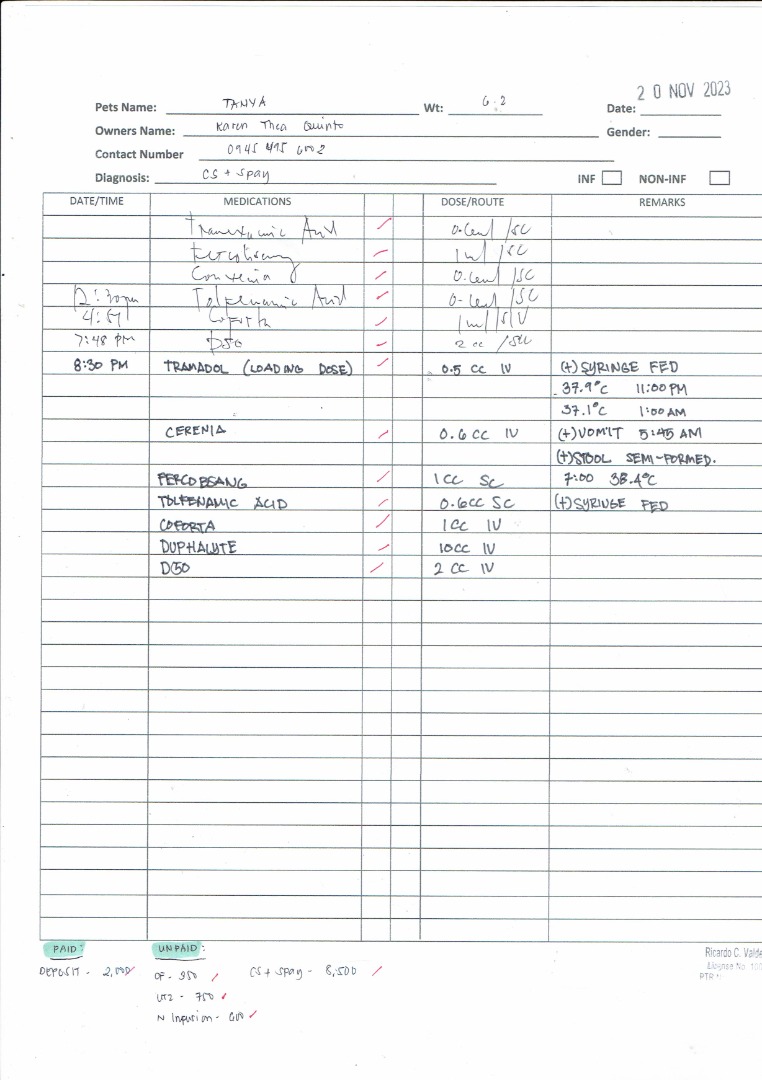 20 NOV 2023
Pets Name: TANYA Wt: 6.2 Date:
Owners Name: Karen Thea Quinto Gender:
Contact Number 0945 495 6002
Diagnosis: CS + Spay INF NON-INF
DATE/TIME MEDICATIONS DOSE/ROUTE REMARKS
Tranexamic Acid /SC
1ml /SC
Convenia /SC
12:30pm Tolfenamic Acid /SC
Coforta 1ml /IV
7:48 PM D50 2 cc
8:30 PM TRAMADOL (LOADING DOSE) 0.5 CC IV (+) SYRINGE FED
37.9°C 11:00 PM
37.1°C 1:00 AM
CERENIA 0.6 CC IV (+) VOMIT 5:45 AM
(+) STOOL SEMI-FORMED.
FERCOBSANG 1CC SC 7:00 38.4°C
TOLFENAMIC ACID 0.6CC SC (+) SYRINGE FED
COFORTA 1CC IV
DUPHALYTE 10CC IV
D50 2 CC IV
PAID: UNPAID:
DEPOSIT - 2,000 CF - 350 CS + Spay - 8,500
UTZ - 750
N Infusion - 600
Ricardo C. Valde
License No.
PTR